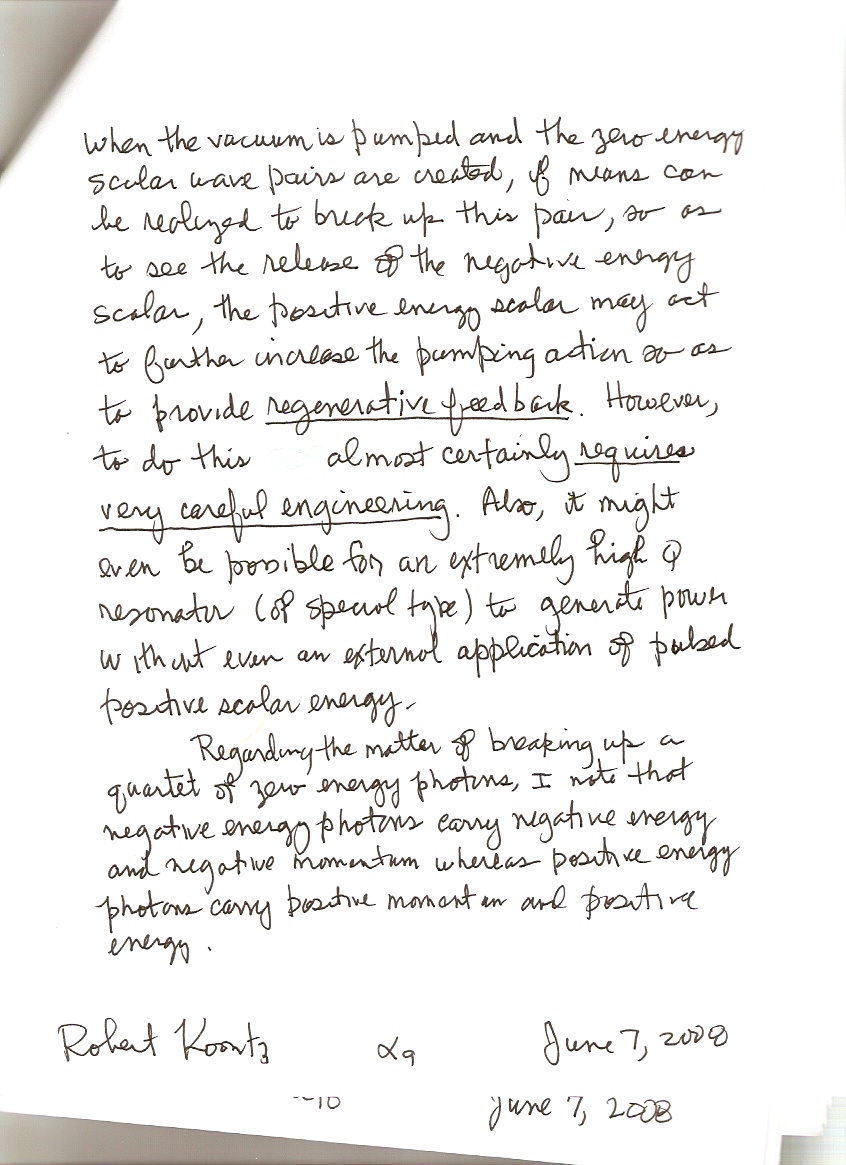 When the vacuum is pumped and the zero energy
scalar wave pairs are created, if means can
be realized to break up this pair, so as
to see the release of the negative energy
scalar, the positive energy scalar may act
to further increase the pumping action so as
to provide regenerative feedback. However,
to do this almost certainly requires
very careful engineering. Also, it might
even be possible for an extremely high Q
resonator (of special type) to generate power
without even an external application of pulsed
positive scalar energy.
Regarding the matter of breaking up a
quartet of zero energy photons, I note that
negative energy photons carry negative energy
and negative momentum whereas positive energy
photons carry positive momentum and positive
energy.
Robert Koontz α9 June 7, 2008
10 June 7, 2008